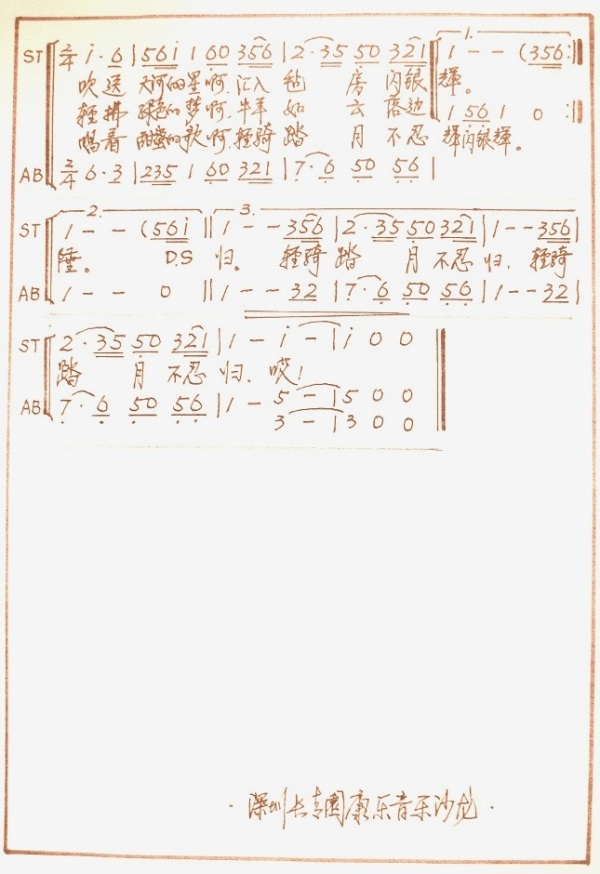 ST 2/4 i· 6 | 5 6 i 1 6 0 3 5 6 | 2· 3 5 5 0 3 2 1 | 1. 1 - - (3 5 6 :||
吹送 天河的星啊,汇入 毡 房 闪银 辉。
轻拂 绿色的梦啊,牛羊 如 云 落边 1 5 6 1 0 :||
唱着 甜蜜的歌啊,轻骑 踏 月 不忍 辉闪银辉。
AB 2/4 6· 3 | 2 3 5 1 6 0 3 2 1 | 7· 6 5 0 5 6 |
2. 3.
ST 1 - - (5 6 i || 1 - - 3 5 6 | 2· 3 5 5 0 3 2 1 | 1 - - 3 5 6 |
陲。 D.S 归。 轻骑 踏 月 不忍 归, 轻骑
AB 1 - - 0 || 1 - - 3 2 | 7· 6 5 0 5 6 | 1 - - 3 2 |
ST 2· 3 5 5 0 3 2 1 | 1 - i - | i 0 0
踏 月 不忍 归, 哎!
AB 7· 6 5 0 5 6 | 1 - 5 - | 5 0 0
3 - | 3 0 0
·深圳长青园康乐音乐沙龙·